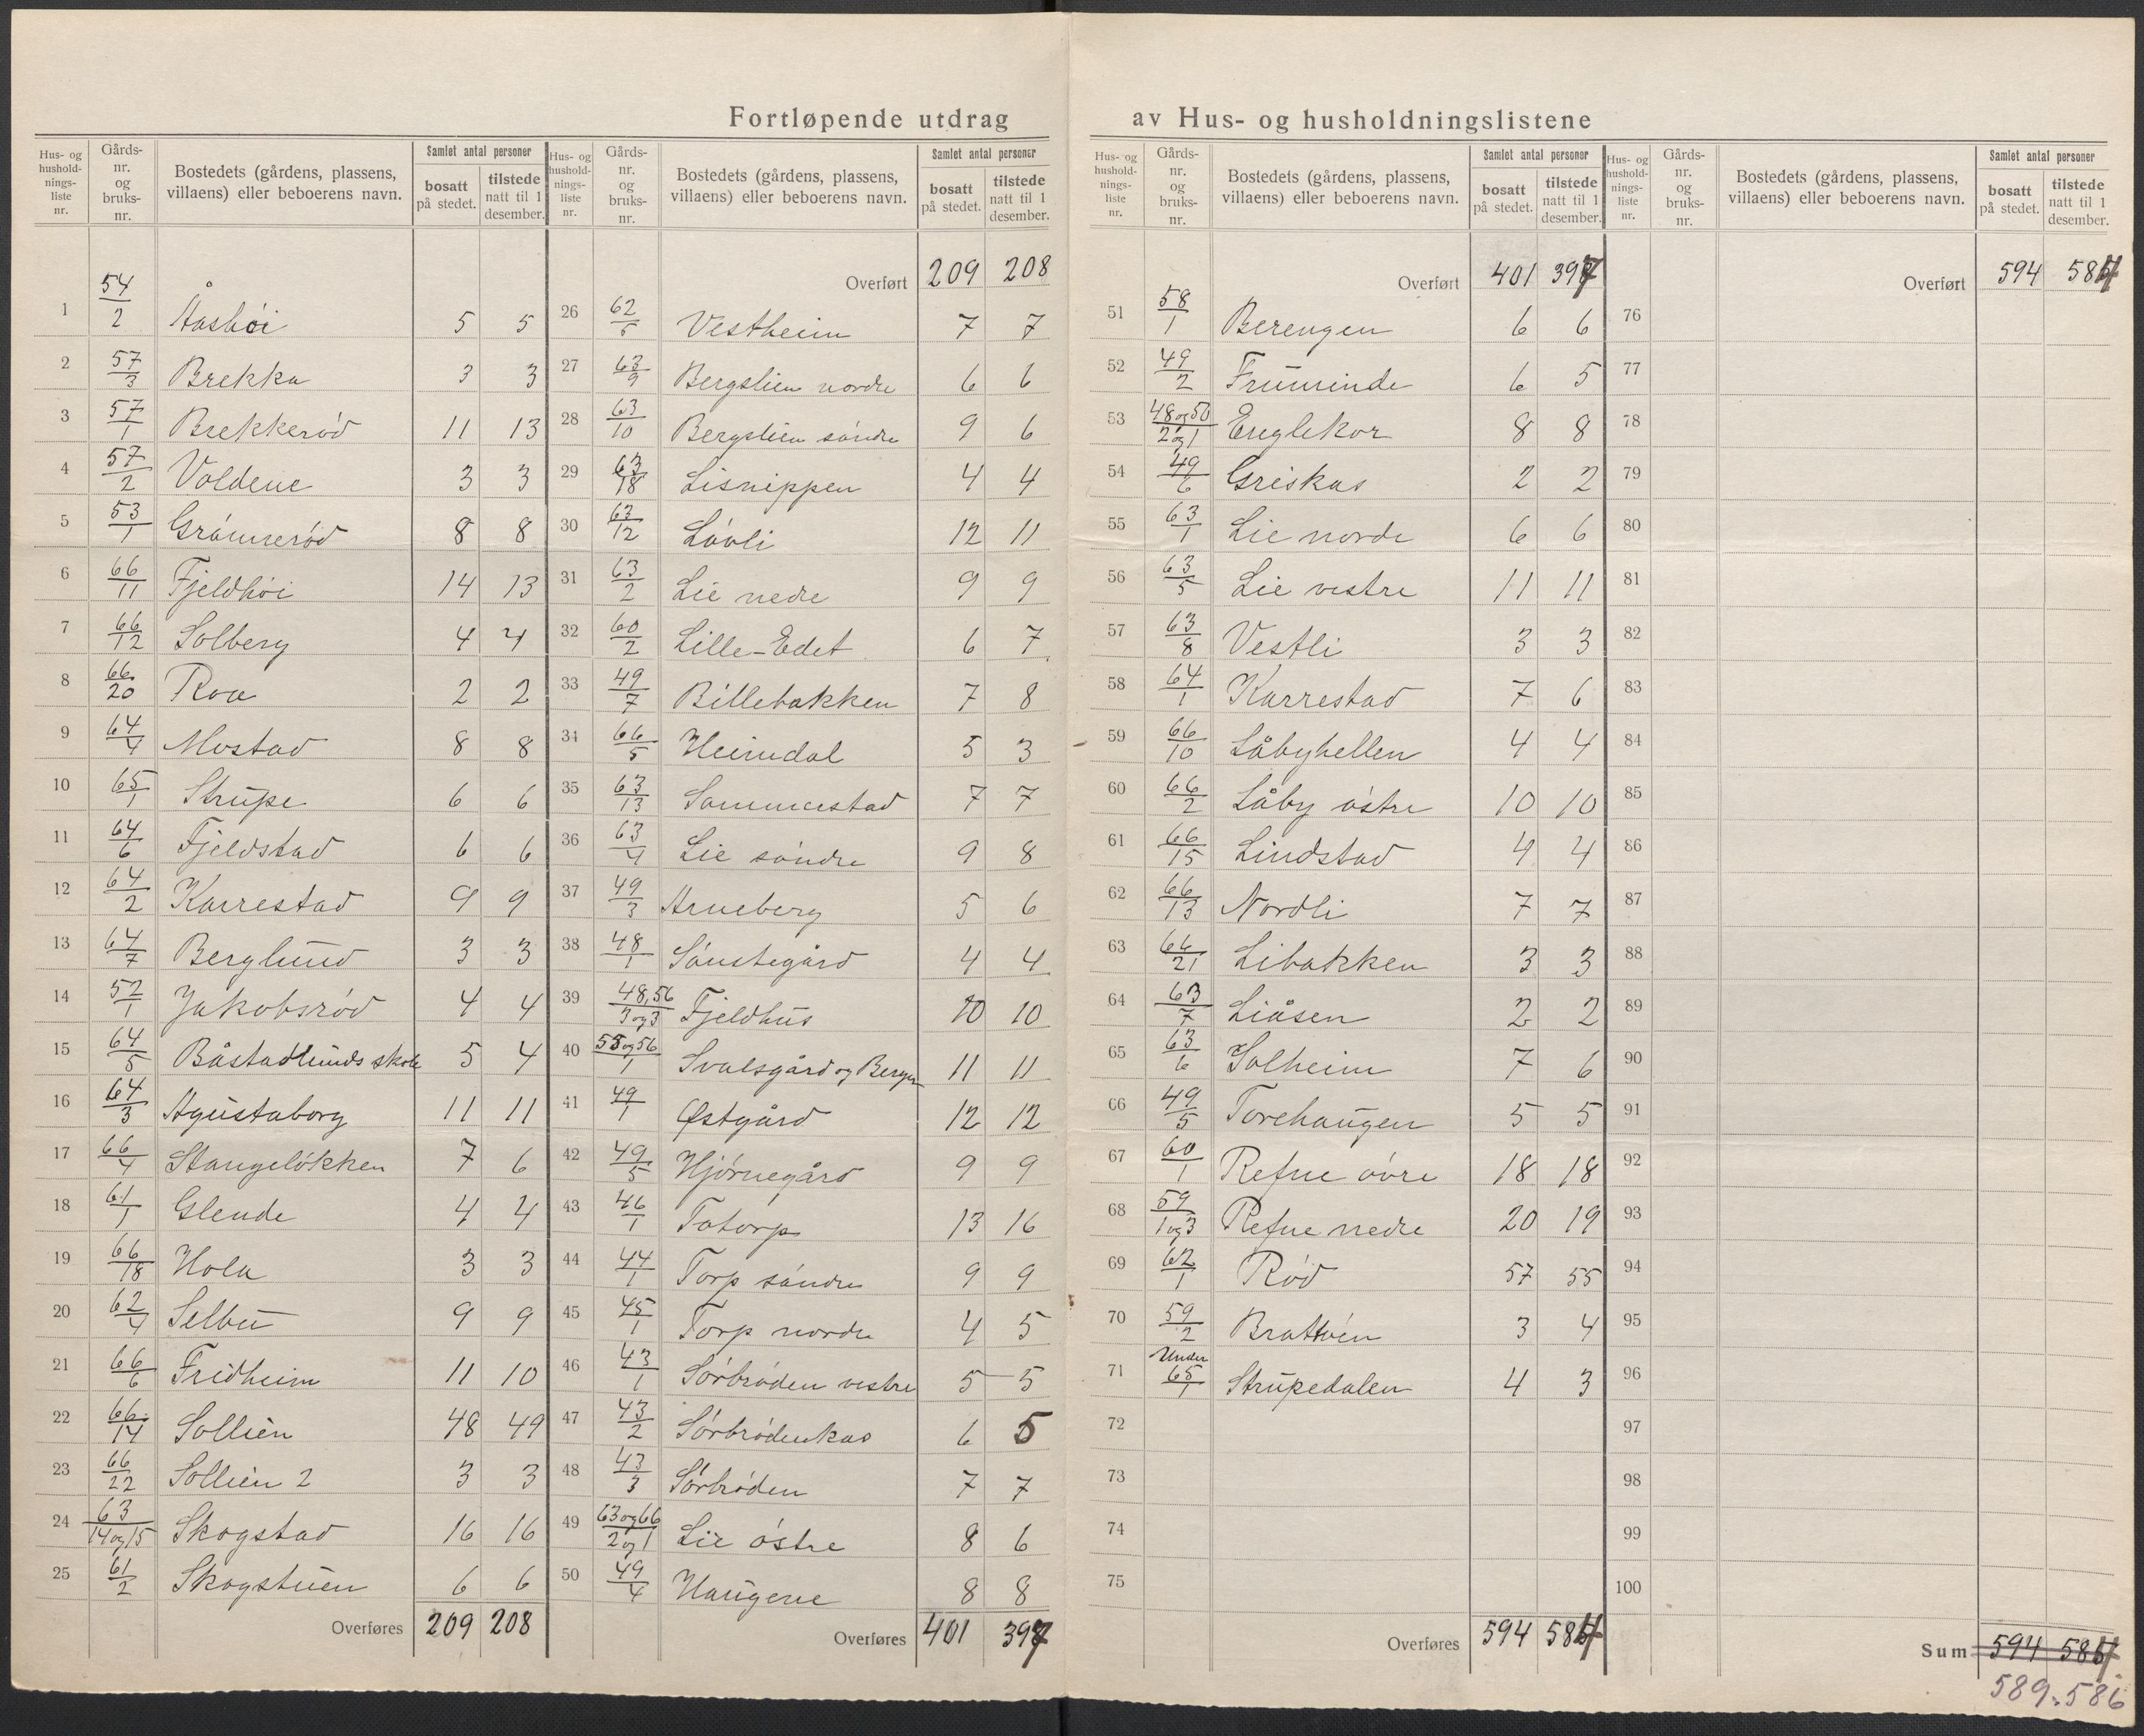 Fortløpende utdrag av Hus- og husholdningslistene
Hus- og husholdnings-liste nr. Gårds-nr. og bruks-nr. Bostedets (gårdens, plassens, villaens) eller beboerens navn. Samlet antal personer bosatt på stedet. tilstede natt til 1 desember.
1 54/2 Åashøi 5 5
2 57/3 Brekka 3 3
3 57/1 Brekkerød 11 13
4 57/2 Voldene 3 3
5 53/1 Grømserød 8 8
6 66/11 Fjeldhøi 14 13
7 66/12 Solberg 4 4
8 66/20 Roa 2 2
9 64/4 Mostad 8 8
10 65/1 Strupe 6 6
11 64/6 Fjeldstad 6 6
12 64/2 Karrestad 9 9
13 64/7 Berglund 3 3
14 52/1 Jakobsrød 4 4
15 64/5 Båstadlunds skole 5 4
16 64/3 Agustaborg 11 11
17 66/4 Stangeløkken 7 6
18 61/1 Glende 4 4
19 66/18 Hola 3 3
20 62/4 Selbu 9 9
21 66/6 Fridheim 11 10
22 66/14 Sollien 48 49
23 66/22 Sollien 2 3 3
24 63/14 og 15 Skogstad 16 16
25 61/2 Skogstuen 6 6
Overføres 209 208
Hus- og husholdnings-liste nr. Gårds-nr. og bruks-nr. Bostedets (gårdens, plassens, villaens) eller beboerens navn. Samlet antal personer bosatt på stedet. tilstede natt til 1 desember.
Overført 209 208
26 62/5 Vestheim 7 7
27 63/9 Bergslien nordre 6 6
28 63/10 Bergslien søndre 9 6
29 63/18 Lisnippen 4 4
30 63/12 Løvli 12 11
31 63/2 Lie nedre 9 9
32 60/2 Lille-Edet 6 7
33 49/7 Billebakken 7 8
34 66/5 Heimdal 5 3
35 63/13 Sommerstad 7 7
36 63/4 Lie søndre 9 8
37 49/3 Arneberg 5 6
38 48/1 Sønstegård 4 4
39 48,56/3 og 3 Fjeldhus 10 10
40 55 og 56/1 Svalsgård og Bergen 11 11
41 49/1 Østgård 12 12
42 49/5 Hjørnegård 9 9
43 46/1 Tatorp 13 16
44 44/1 Torp søndre 9 9
45 45/1 Torp nordre 4 5
46 43/1 Sørbrøden vestre 5 5
47 43/2 Sørbrødenkas 6 5
48 43/3 Sørbrøden 7 7
49 63 og 66/2 og 1 Lie østre 8 6
50 49/4 Haugene 8 8
Overføres 401 397
Hus- og husholdnings-liste nr. Gårds-nr. og bruks-nr. Bostedets (gårdens, plassens, villaens) eller beboerens navn. Samlet antal personer bosatt på stedet. tilstede natt til 1 desember.
Overført 401 397
51 58/1 Berengen 6 6
52 49/2 Fruminde 6 5
53 48 og 50/2 og 1 Englekor 8 8
54 49/6 Griskas 2 2
55 63/1 Lie nordre 6 6
56 63/5 Lie vestre 11 11
57 63/8 Vestli 3 3
58 64/1 Karrestad 7 6
59 66/10 Låbyhellen 4 4
60 66/2 Låby østre 10 10
61 66/15 Lindstad 4 4
62 66/13 Nordli 7 7
63 66/21 Libakken 3 3
64 63/7 Liåsen 2 2
65 63/6 Solheim 7 6
66 49/5 Torehaugen 5 5
67 60/1 Refne øvre 18 18
68 59/1 og 3 Refne nedre 20 19
69 62/1 Rød 57 55
70 59/2 Brattvén 3 4
71 Under 65/1 Strupedalen 4 3
72
73
74
75
Overføres 594 584
Hus- og husholdnings-liste nr. Gårds-nr. og bruks-nr. Bostedets (gårdens, plassens, villaens) eller beboerens navn. Samlet antal personer bosatt på stedet. tilstede natt til 1 desember.
Overført 594 584
76
77
78
79
80
81
82
83
84
85
86
87
88
89
90
91
92
93
94
95
96
97
98
99
100
Sum 594 584
589. 586